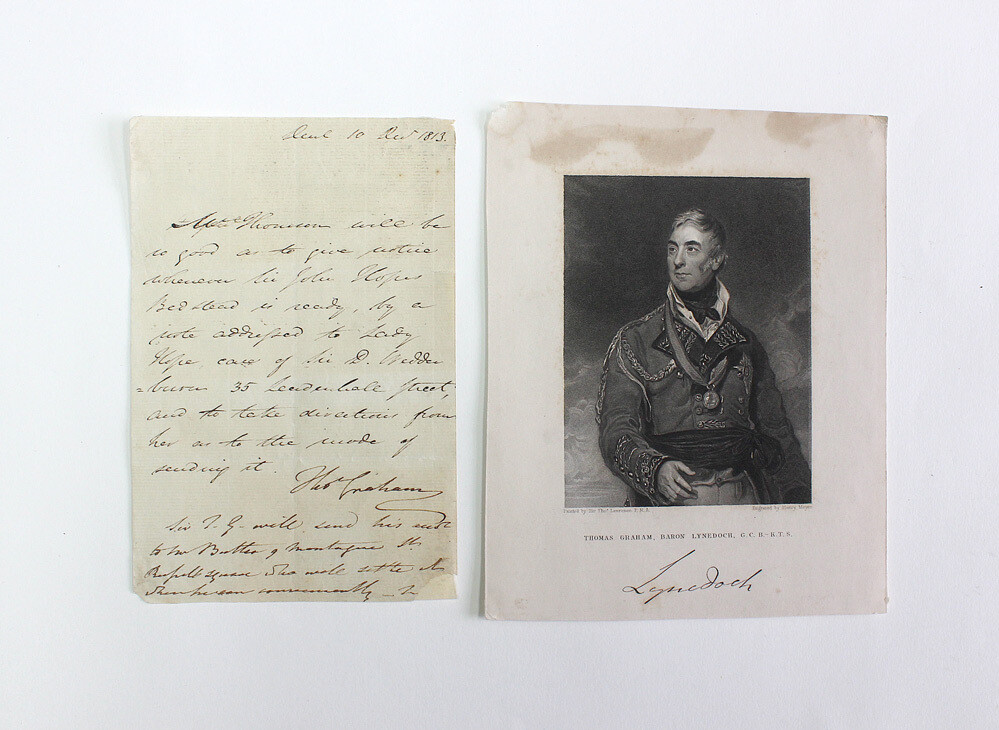 Deal 10 Decr 1813.
Thomson will be
so good as to give notice
whenever Sir John Hopes
Bedstead is ready, by a
note addressed to Lady
Hope care of Sir D. Wedder
=burn 35 Leadenhall Street,
and to take directions from
her as to the mode of
sending it.
Thos. Graham
Sir T. G. will send his
to Mr Butler 9 Montague St.
Russell square who will settle it
when he can conveniently
Painted by Sir Thos. Lawrence, P.R.A.
Engraved by Henry Meyer
THOMAS GRAHAM, BARON LYNEDOCH, G.C.B.-K.T.S.
Lynedoch